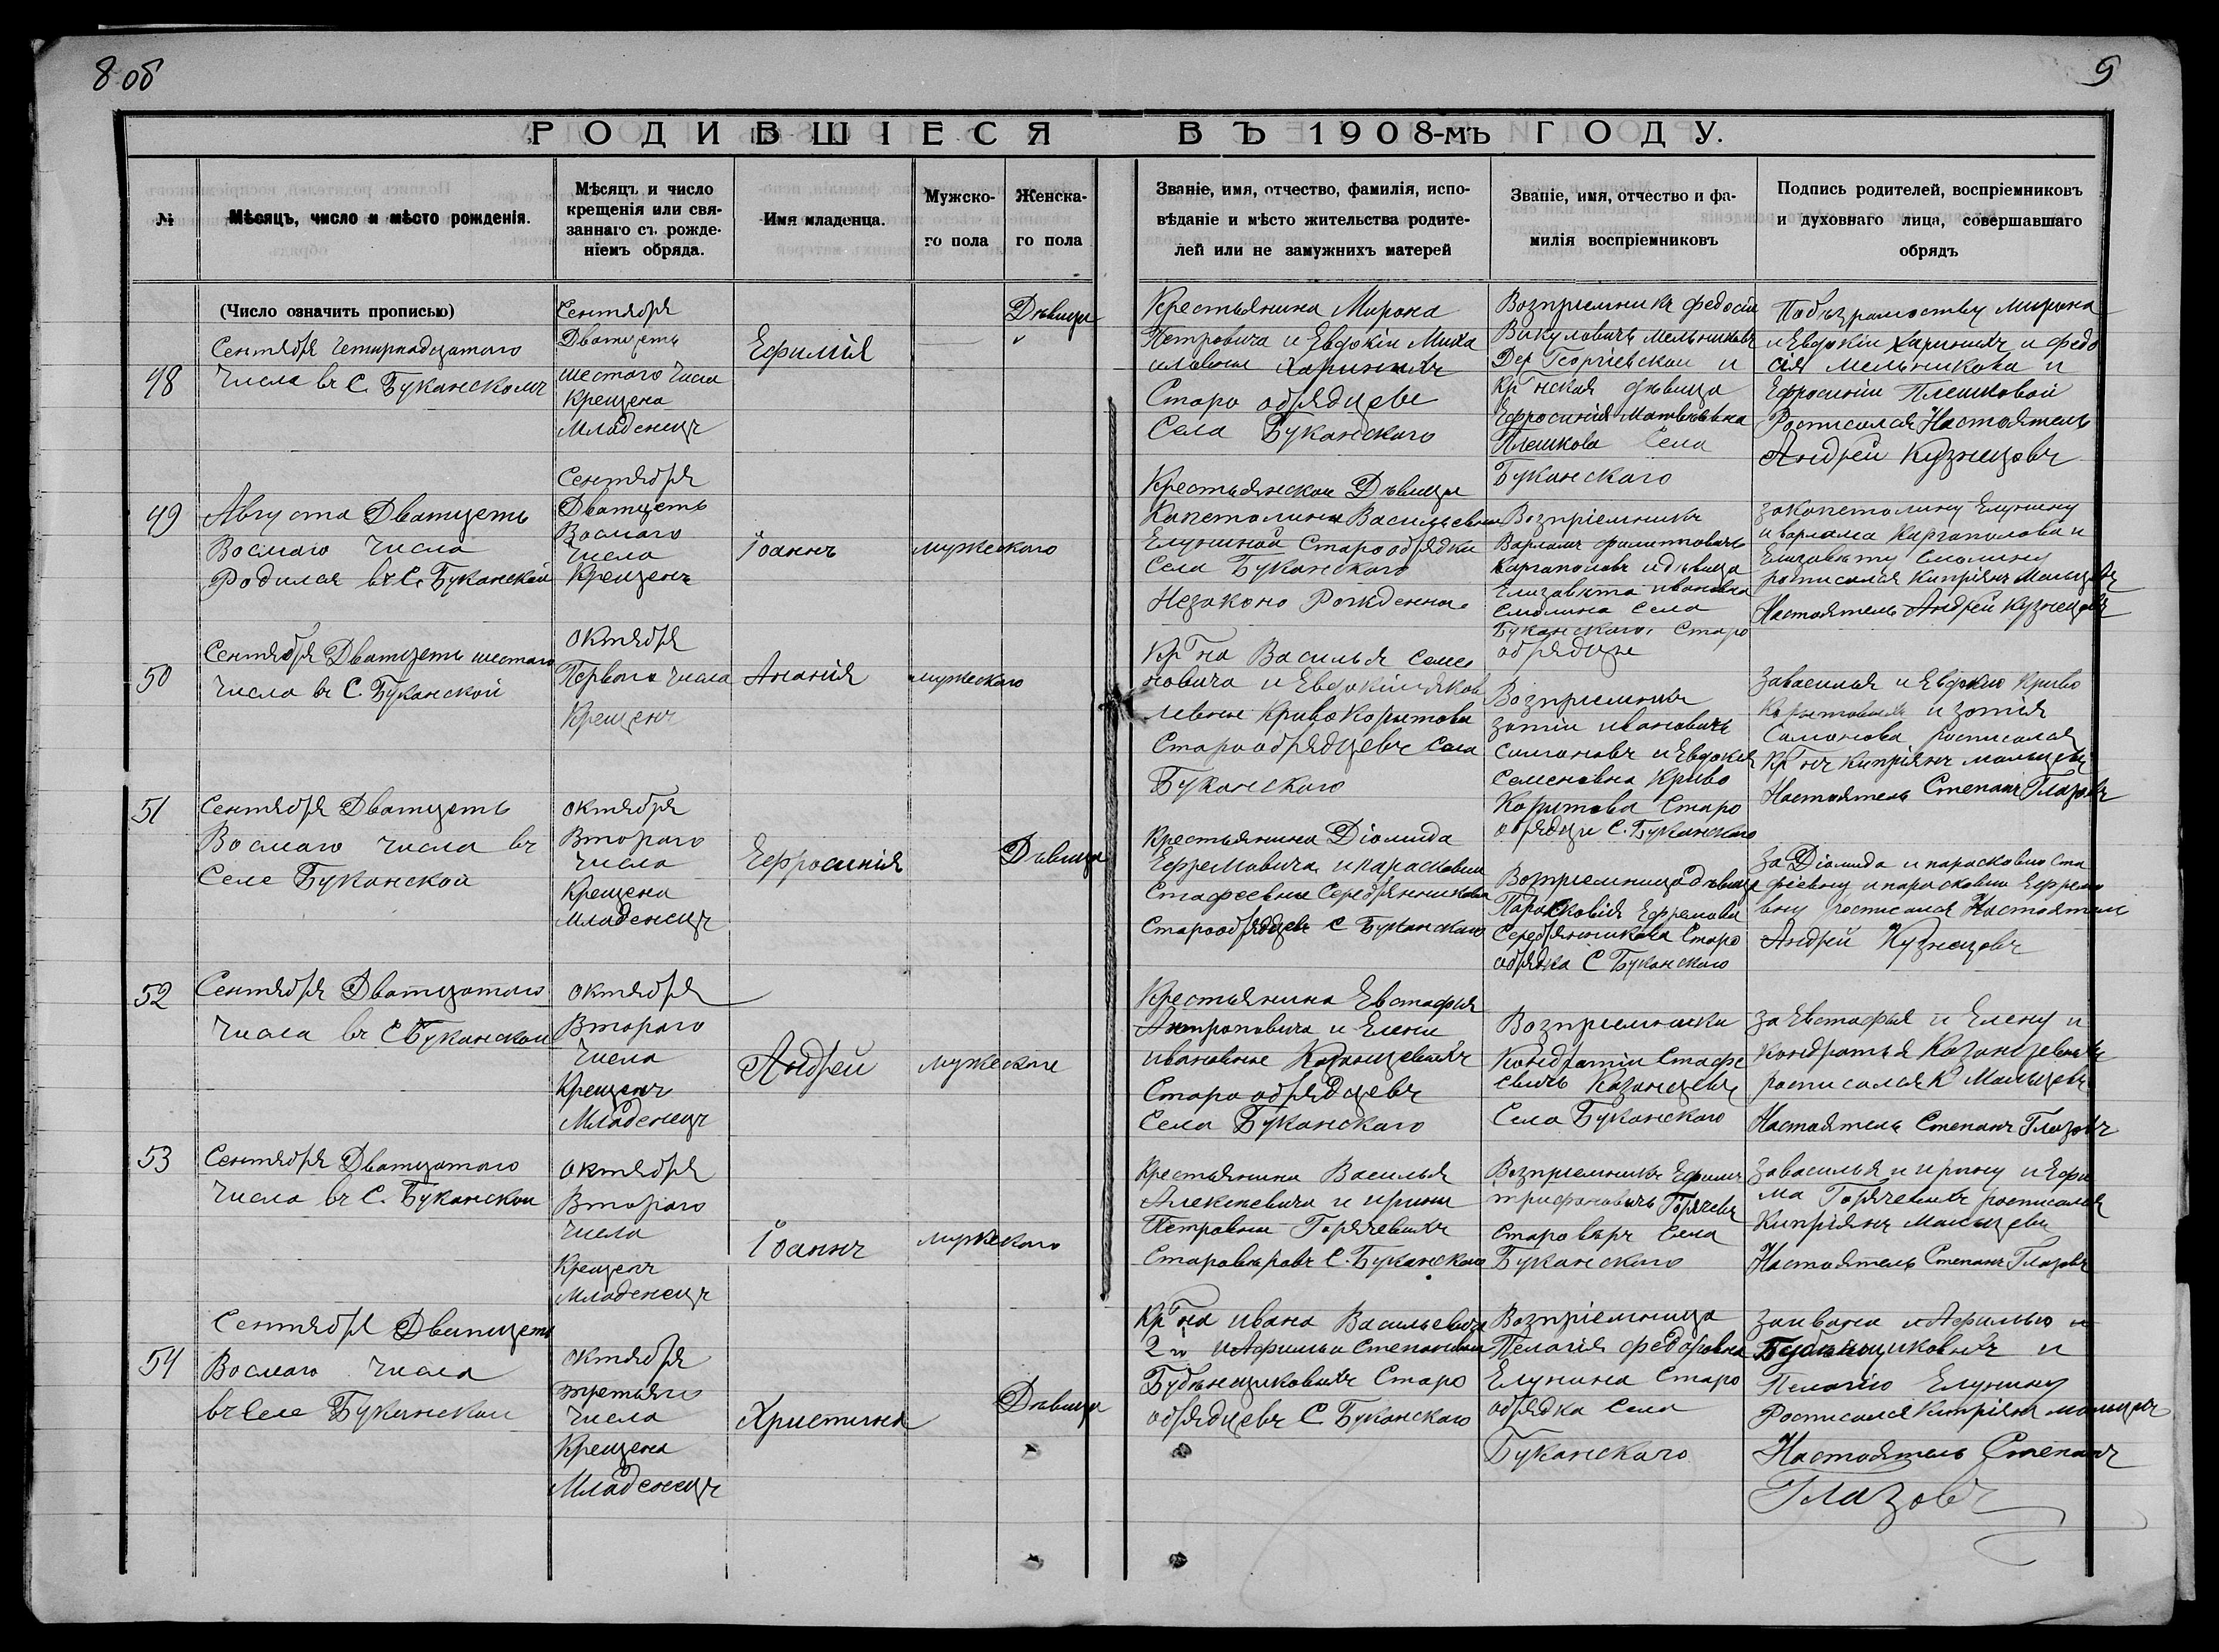 8 об
9
РОДИВШІЕСЯ ВЪ 1908-мъ ГОДУ.
№
Мѣсяцъ, число и мѣсто рожденія.
Мѣсяцъ и число
крещенія или свя-
заннаго съ рожде-
ніемъ обряда.
Имя младенца.
Мужско-
го пола
Женска-
го пола
Званіе, имя, отчество, фамилія, испо-
вѣданіе и мѣсто жительства родите-
лей или не замужнихъ матерей
Званіе, имя, отчество и фа-
милія воспріемниковъ
Подпись родителей, воспріемниковъ
и духовнаго лица, совершавшаго
обрядъ
(Число означить прописью)
48
Сентября четырнадцатого
числа въ С. Буканскомъ
Сентября
Дватцеть
шестого числа
Крещена
Младенецъ
Ефимія
Дѣвица
Крестьянина Мирона
Петровича и Евдокіи Миха
иловны Хариныхъ
Старо обрядцевъ
Села Буканского
Возпріемникъ Федосій
Викуловичъ Мельниковъ
Дер Георгіевской и
Кр нская дѣвица
Ефросинія Матвѣевна
Плешкова Села
Буканского
Побезграмоству Мирона
и Евдокіи Хариныхъ и Федо
сія Мельникова и
Ефросиніи Плешковой
Росписался Настоятель
Андрей Кузнецовъ
49
Августа Дватцеть
Восмаго числа
Родился въ С. Буканской
Сентября
Дватцеть
Восмаго
числа
Крещенъ
Іоаннъ
мужеского
Крестьянской Дѣвицы
Капетолины Васильевны
Елуниной Старообрядки
Села Буканского
Незаконо Рожденная
Возпріемникъ
Варламъ филипповичъ
Каргаполовъ и дѣвица
Елизавѣта ивановна
Смолина Села
Буканского, Старо
обрядцы
За капетолину Елунину
и варлама Каргаполова и
Елизавѣту Смолину
росписался Кипріянъ Мальцевъ
Настоятель Андрей Кузнецовъ
50
Сентября Дватцеть шестаго
числа въ С. Буканской
Октября
Перваго числа
Крещенъ
Ананія
мужеского
Кр на Василья Семе
новича и Евдокіи яков
левны КривоКорытовы
Старообрядцевъ Села
Буканского
Возпріемникъ
зотіи ивановичъ
Симоновъ и Евдокия
Семеновна Криво
Корытова Старо
обрядцы С. Буканского
За василья и Евдокию Криво
корытовыхъ и зотія
Симонова росписался
Кр нъ Кипріянъ мальцевъ
Настоятель Степанъ Глазовъ
51
Сентября Дватцеть
Восмаго числа въ
Селе Буканской
Октября
Втораго
числа
Крещена
Младенецъ
Ефросинія
Дѣвица
Крестьянина Діомида
Ефремовича и парасковии
Стафеевны Серебрянниковы
Старообрядцевъ С Буканского
Возпріемница дѣвица
Парасковія Ефремовна
Серебрянникова Старо
обрядка С Буканского
За Діомида и парасковию Ста
фіевну и парасковию Ефремо
вну росписался Настоятель
Андрей Кузнецовъ
52
Сентября Дватцатого
числа въ С Буканской
Октября
Втораго
Числа
Крещенъ
Младенецъ
Андрей
мужеского
Крестьянина Евстафия
Антроповича и Елены
ивановны Казанцевыхъ
Старо обрядцевъ
Села Буканского
Возпріемники
Кондратіи Стафе
евичъ Казанцевъ
Села Буканского
За Евстафья и Елену и
Кондратья Казанцевыхъ
росписался К Мальцевъ
Настоятель Степанъ Глазовъ
53
Сентября Дватцатого
числа въ С. Буканской
Октября
Втораго
числа
Крещенъ
Младенецъ
Іоаннъ
мужеского
Крестьянина Василья
Алексеевича и ирины
Петровны Горячевыхъ
Староверовъ С. Буканского
Возпріемникъ Ефимъ
трифановичъ Горячевъ
Староверъ Села
Буканского
За василья и ирину и Ефи
ма Горячевыхъ росписался
Кипріянъ Мальцевъ
Настоятель Степанъ Глазовъ
54
Сентября Дватцеть
Восмаго числа
въ Селе Буканской
Октября
третьяго
числа
Крещена
Младенецъ
Христина
Дѣвица
Кр на ивана Васильевича
2 го и Афимьи Степановны
Бубенщиковыхъ Старо
обрядцевъ С Буканского
Возпріемница
Пелагія федоровна
Елунина Старо
обрядка Села
Буканского
За ивана и Афимью и
Бубенщиковыхъ и
Пелагію Елунину
Росписался Кипріянъ мальцевъ
Настоятель Степанъ
Глазовъ